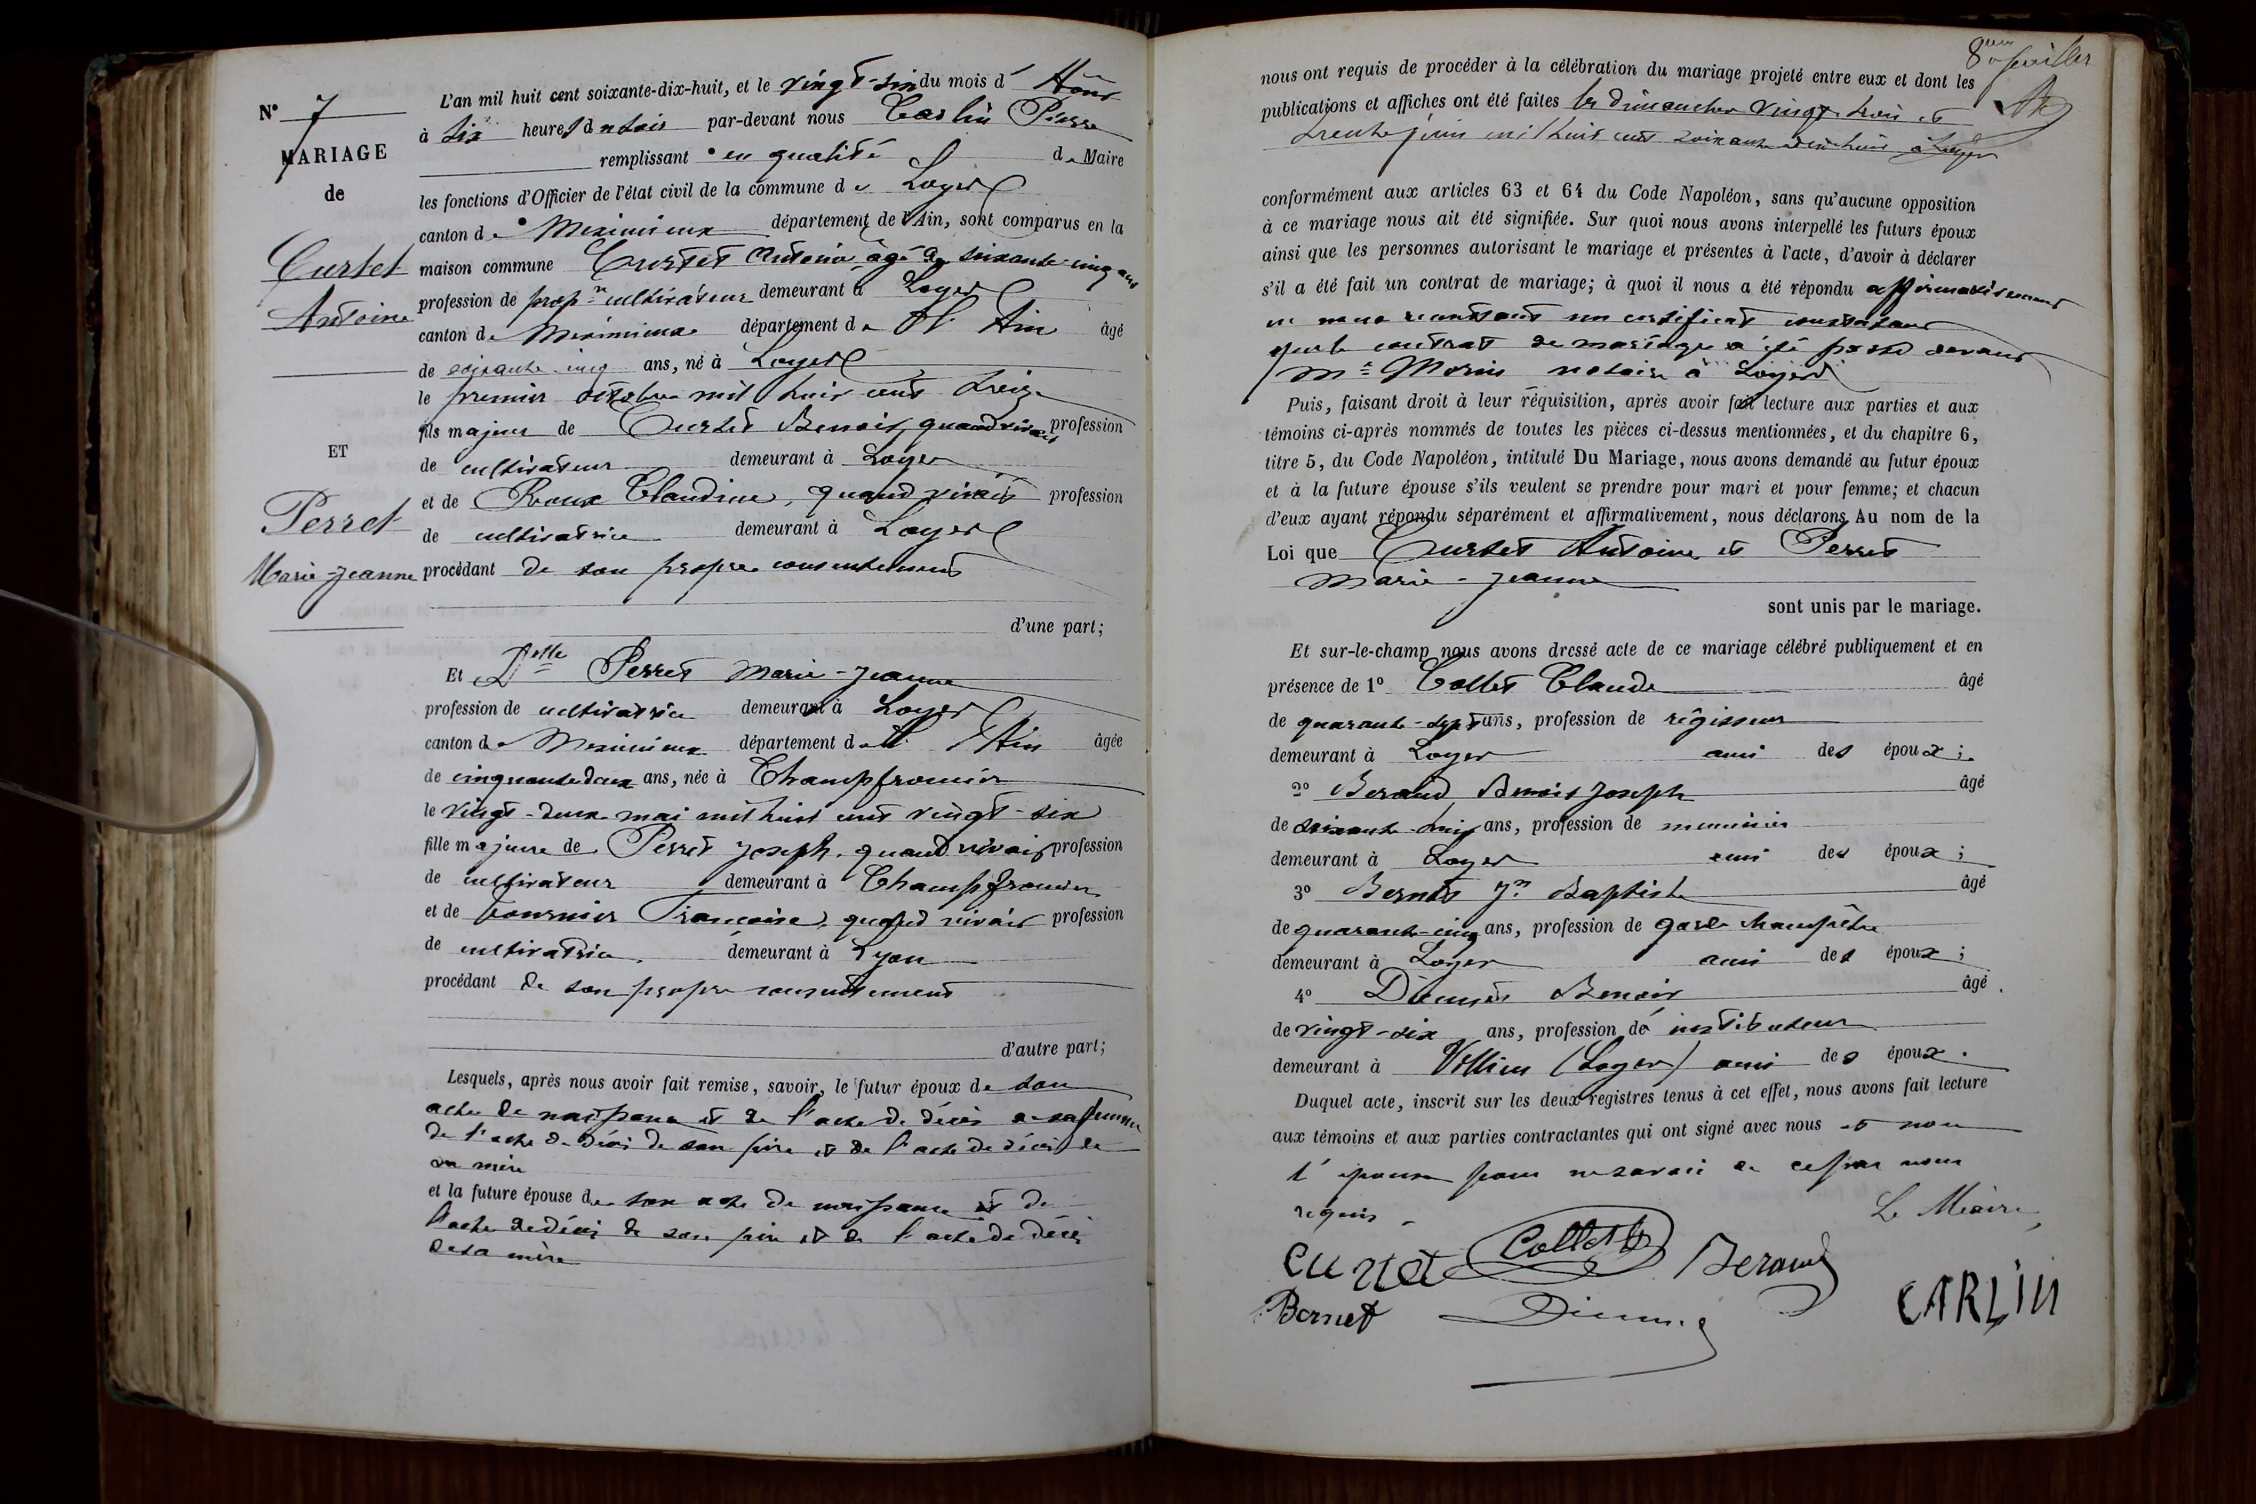 N° 7
MARIAGE
de
Curtet
Antoine
ET
Perret
Marie-Jeanne
L'an mil huit cent soixante-dix-huit, et le vingt-six du mois d' Août
à six heures du soir par-devant nous Carlin Pierre
remplissant en qualité de Maire
les fonctions d'Officier de l'état civil de la commune de Loyes
canton de Meximieux département de l'Ain, sont comparus en la
maison commune Curtet Antoine, âgé de soixante-cinq ans
profession de prop.re cultivateur demeurant à Loyes
canton de Meximieux département de l'Ain âgé
de soixante-cinq ans, né à Loyes
le premier octobre mil huit cent treize
fils majeur de Curtet Benoit, quand vivait profession
de cultivateur demeurant à Loyes
et de Roux Claudine, quand vivait profession
de cultivatrice demeurant à Loyes
procédant de son propre consentement
d'une part;
Et Delle Perret Marie-Jeanne
profession de cultivatrice demeurant à Loyes
canton de Meximieux département de l'Ain âgée
de cinquante deux ans, née à Champfromier
le vingt-deux mai mil huit cent vingt-six
fille majeure de Perret Joseph, quand vivait profession
de cultivateur demeurant à Champfromier
et de Tournier Françoise, quand vivait profession
de cultivatrice, demeurant à Lyon
procédant de son propre consentement
d'autre part;
Lesquels, après nous avoir fait remise, savoir, le futur époux de son
acte de naissance et de l'acte de décès de sa femme
de l'acte de décès de son père et de l'acte de décès de
sa mère
et la future épouse de son acte de naissance et de
l'acte de décès de son père et de l'acte de décès
de sa mère
8me feuillet
nous ont requis de procéder à la célébration du mariage projeté entre eux et dont les
publications et affiches ont été faites les dimanches vingt trois et
trente juin mil huit cent soixante dix huit à Loyes
conformément aux articles 63 et 64 du Code Napoléon, sans qu'aucune opposition
à ce mariage nous ait été signifiée. Sur quoi nous avons interpellé les futurs époux
ainsi que les personnes autorisant le mariage et présentes à l'acte, d'avoir à déclarer
s'il a été fait un contrat de mariage; à quoi il nous a été répondu affirmativement
en nous remettant un certificat constatant
que le contrat de mariage a été passé devant
Me Morin notaire à Loyes
Puis, faisant droit à leur réquisition, après avoir fait lecture aux parties et aux
témoins ci-après nommés de toutes les pièces ci-dessus mentionnées, et du chapitre 6,
titre 5, du Code Napoléon, intitulé Du Mariage, nous avons demandé au futur époux
et à la future épouse s'ils veulent se prendre pour mari et pour femme; et chacun
d'eux ayant répondu séparément et affirmativement, nous déclarons Au nom de la
Loi que Curtet Antoine et Perret
Marie-Jeanne
sont unis par le mariage.
Et sur-le-champ nous avons dressé acte de ce mariage célébré publiquement et en
présence de 1° Collet Claude âgé
de quarante-sept ans, profession de régisseur
demeurant à Loyes ami des époux;
2° Beraud Benoit Joseph âgé
de ans, profession de meunier
demeurant à Loyes ami des époux;
3° Bernet Jn Baptiste âgé
de quarante-cinq ans, profession de garde champêtre
demeurant à Loyes ami des époux;
4° Benoit âgé
de vingt-six ans, profession de instituteur
demeurant à Villieu (Loyes) ami des époux.
Duquel acte, inscrit sur les deux registres tenus à cet effet, nous avons fait lecture
aux témoins et aux parties contractantes qui ont signé avec nous et non
l'épouse pour ne savoir de ce par nous
requis.
Le Maire,
Curtet Collet Beraud
Bernet CARLIN